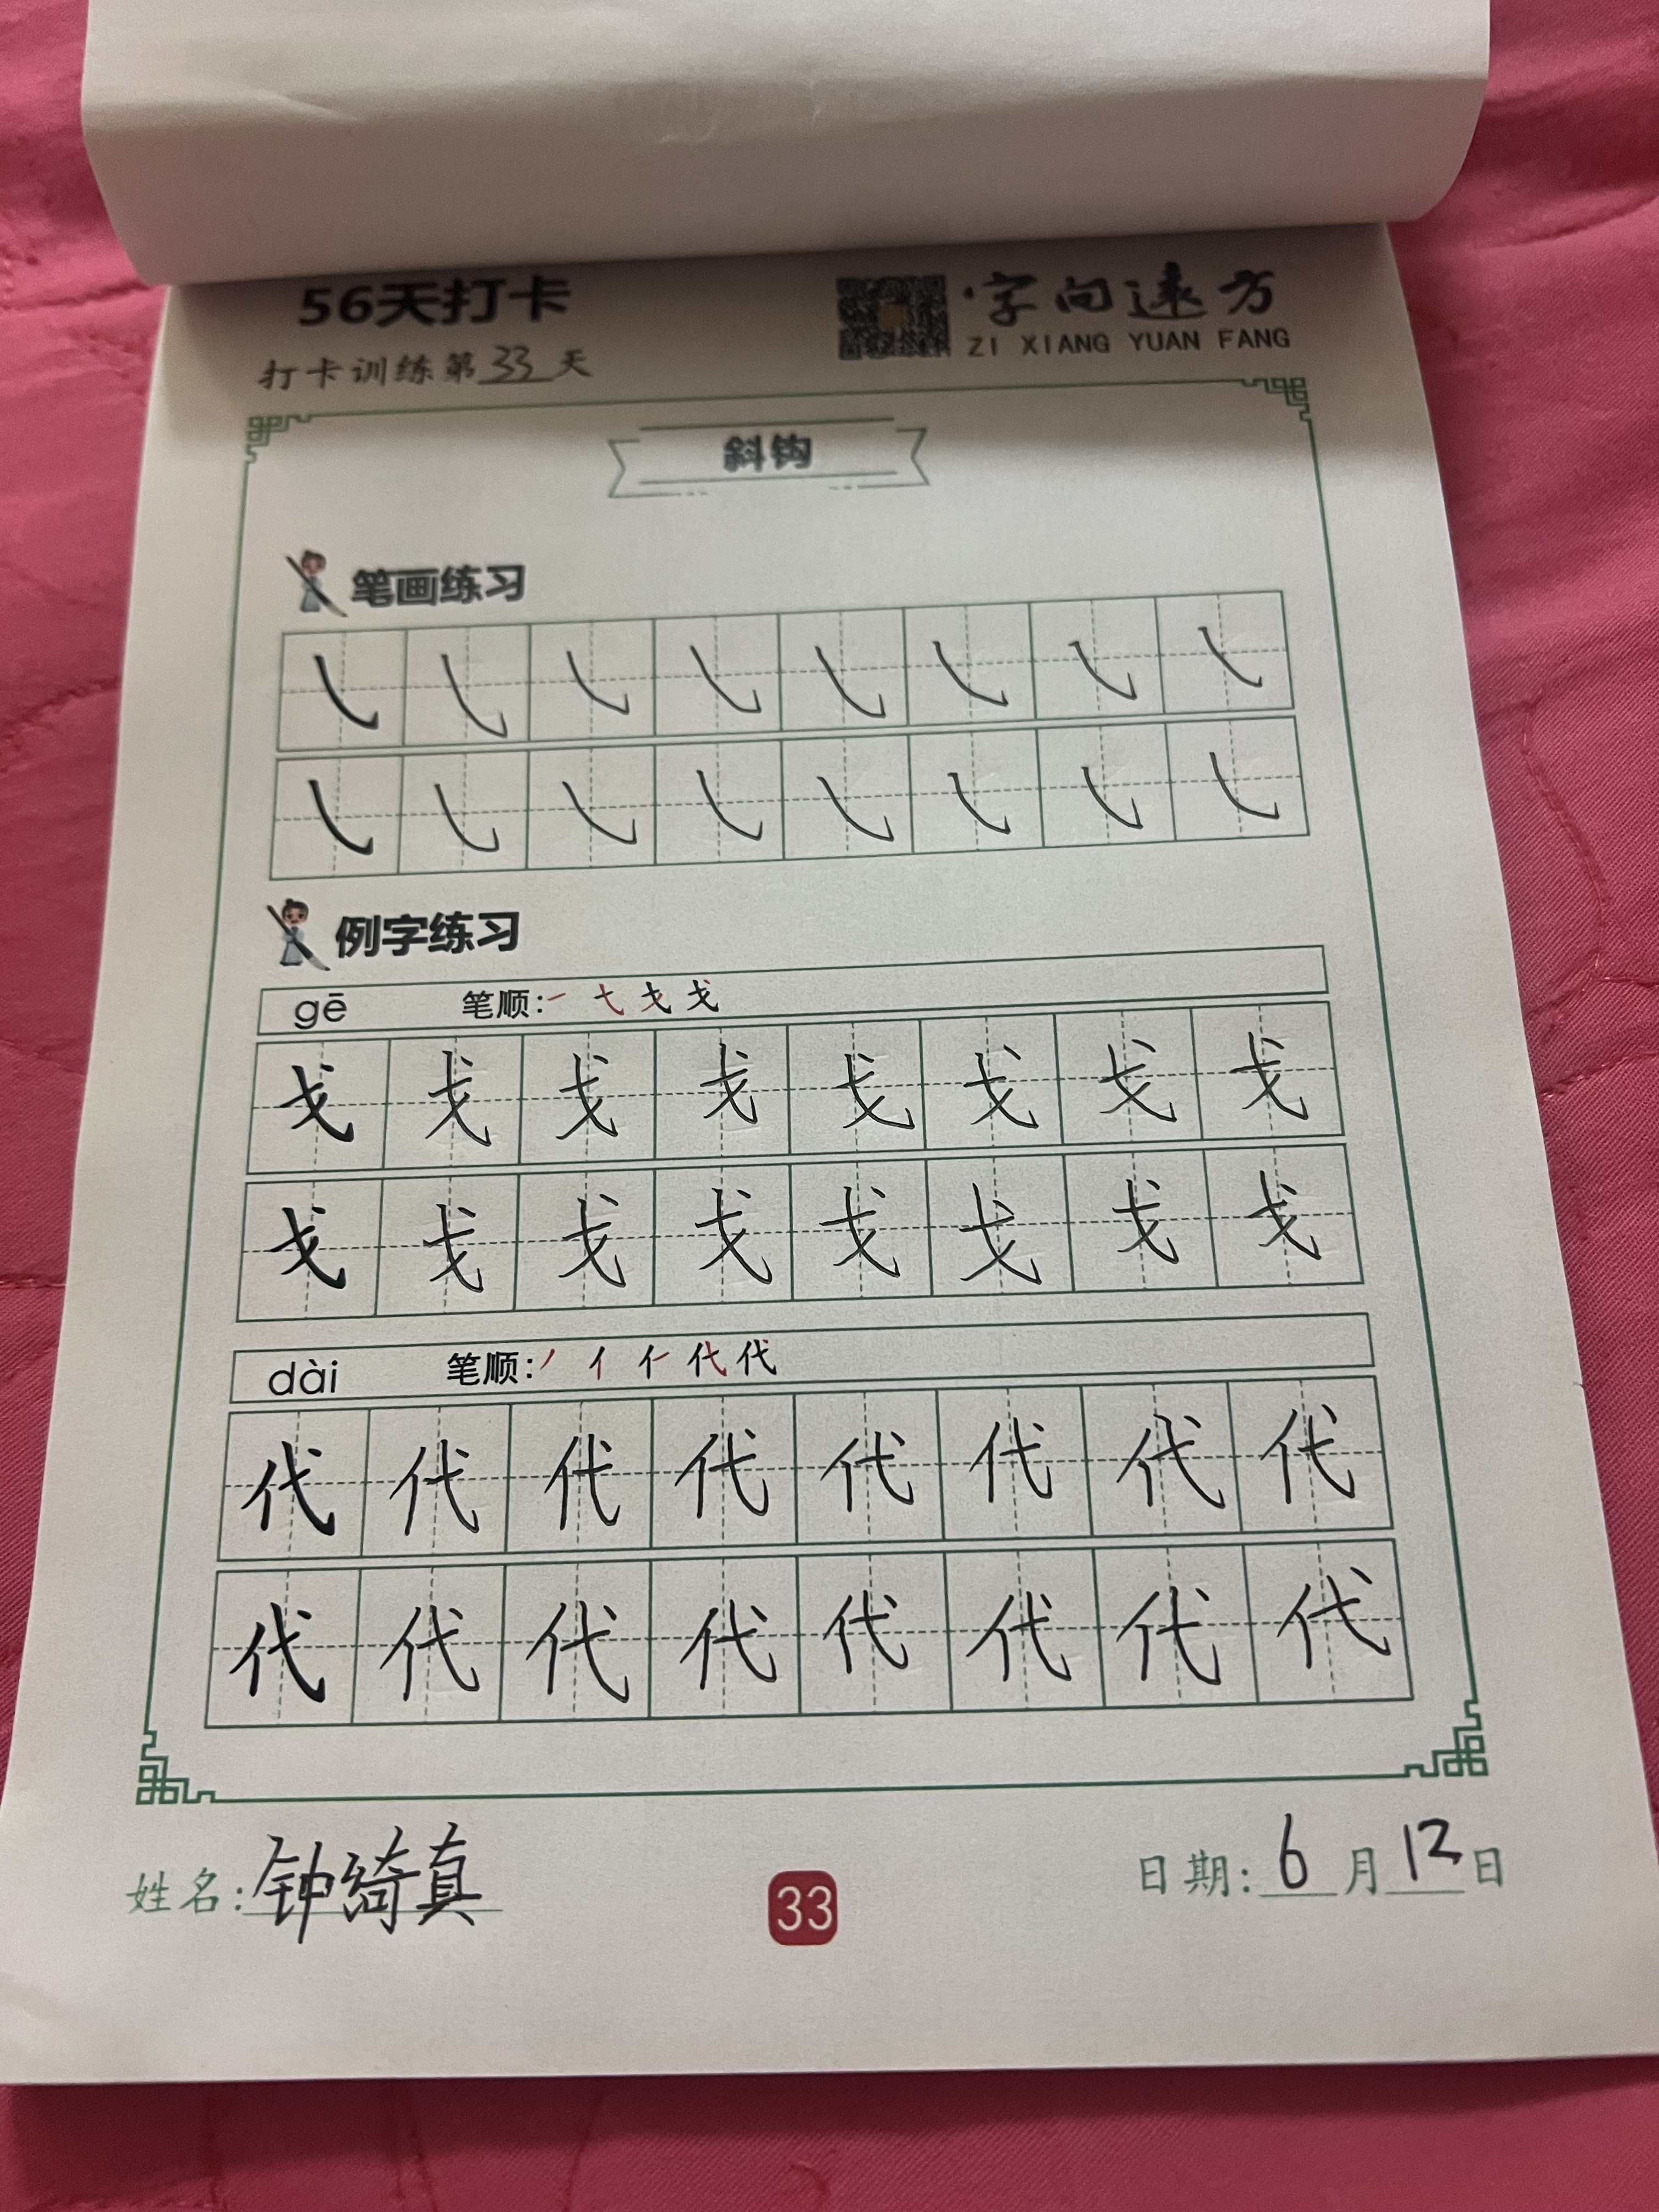 56天打卡
·字向远方
ZI XIANG YUAN FANG
打卡训练第33天
斜钩
笔画练习
㇂ ㇂ ㇂ ㇂ ㇂ ㇂ ㇂ ㇂
㇂ ㇂ ㇂ ㇂ ㇂ ㇂ ㇂ ㇂
例字练习
gē 笔顺: 一 弋 戈 戈
戈 戈 戈 戈 戈 戈 戈 戈
戈 戈 戈 戈 戈 戈 戈 戈
dài 笔顺: 丿 亻 仁 代 代
代 代 代 代 代 代 代 代
代 代 代 代 代 代 代 代
姓名:钟绮真
33
日期:6月12日